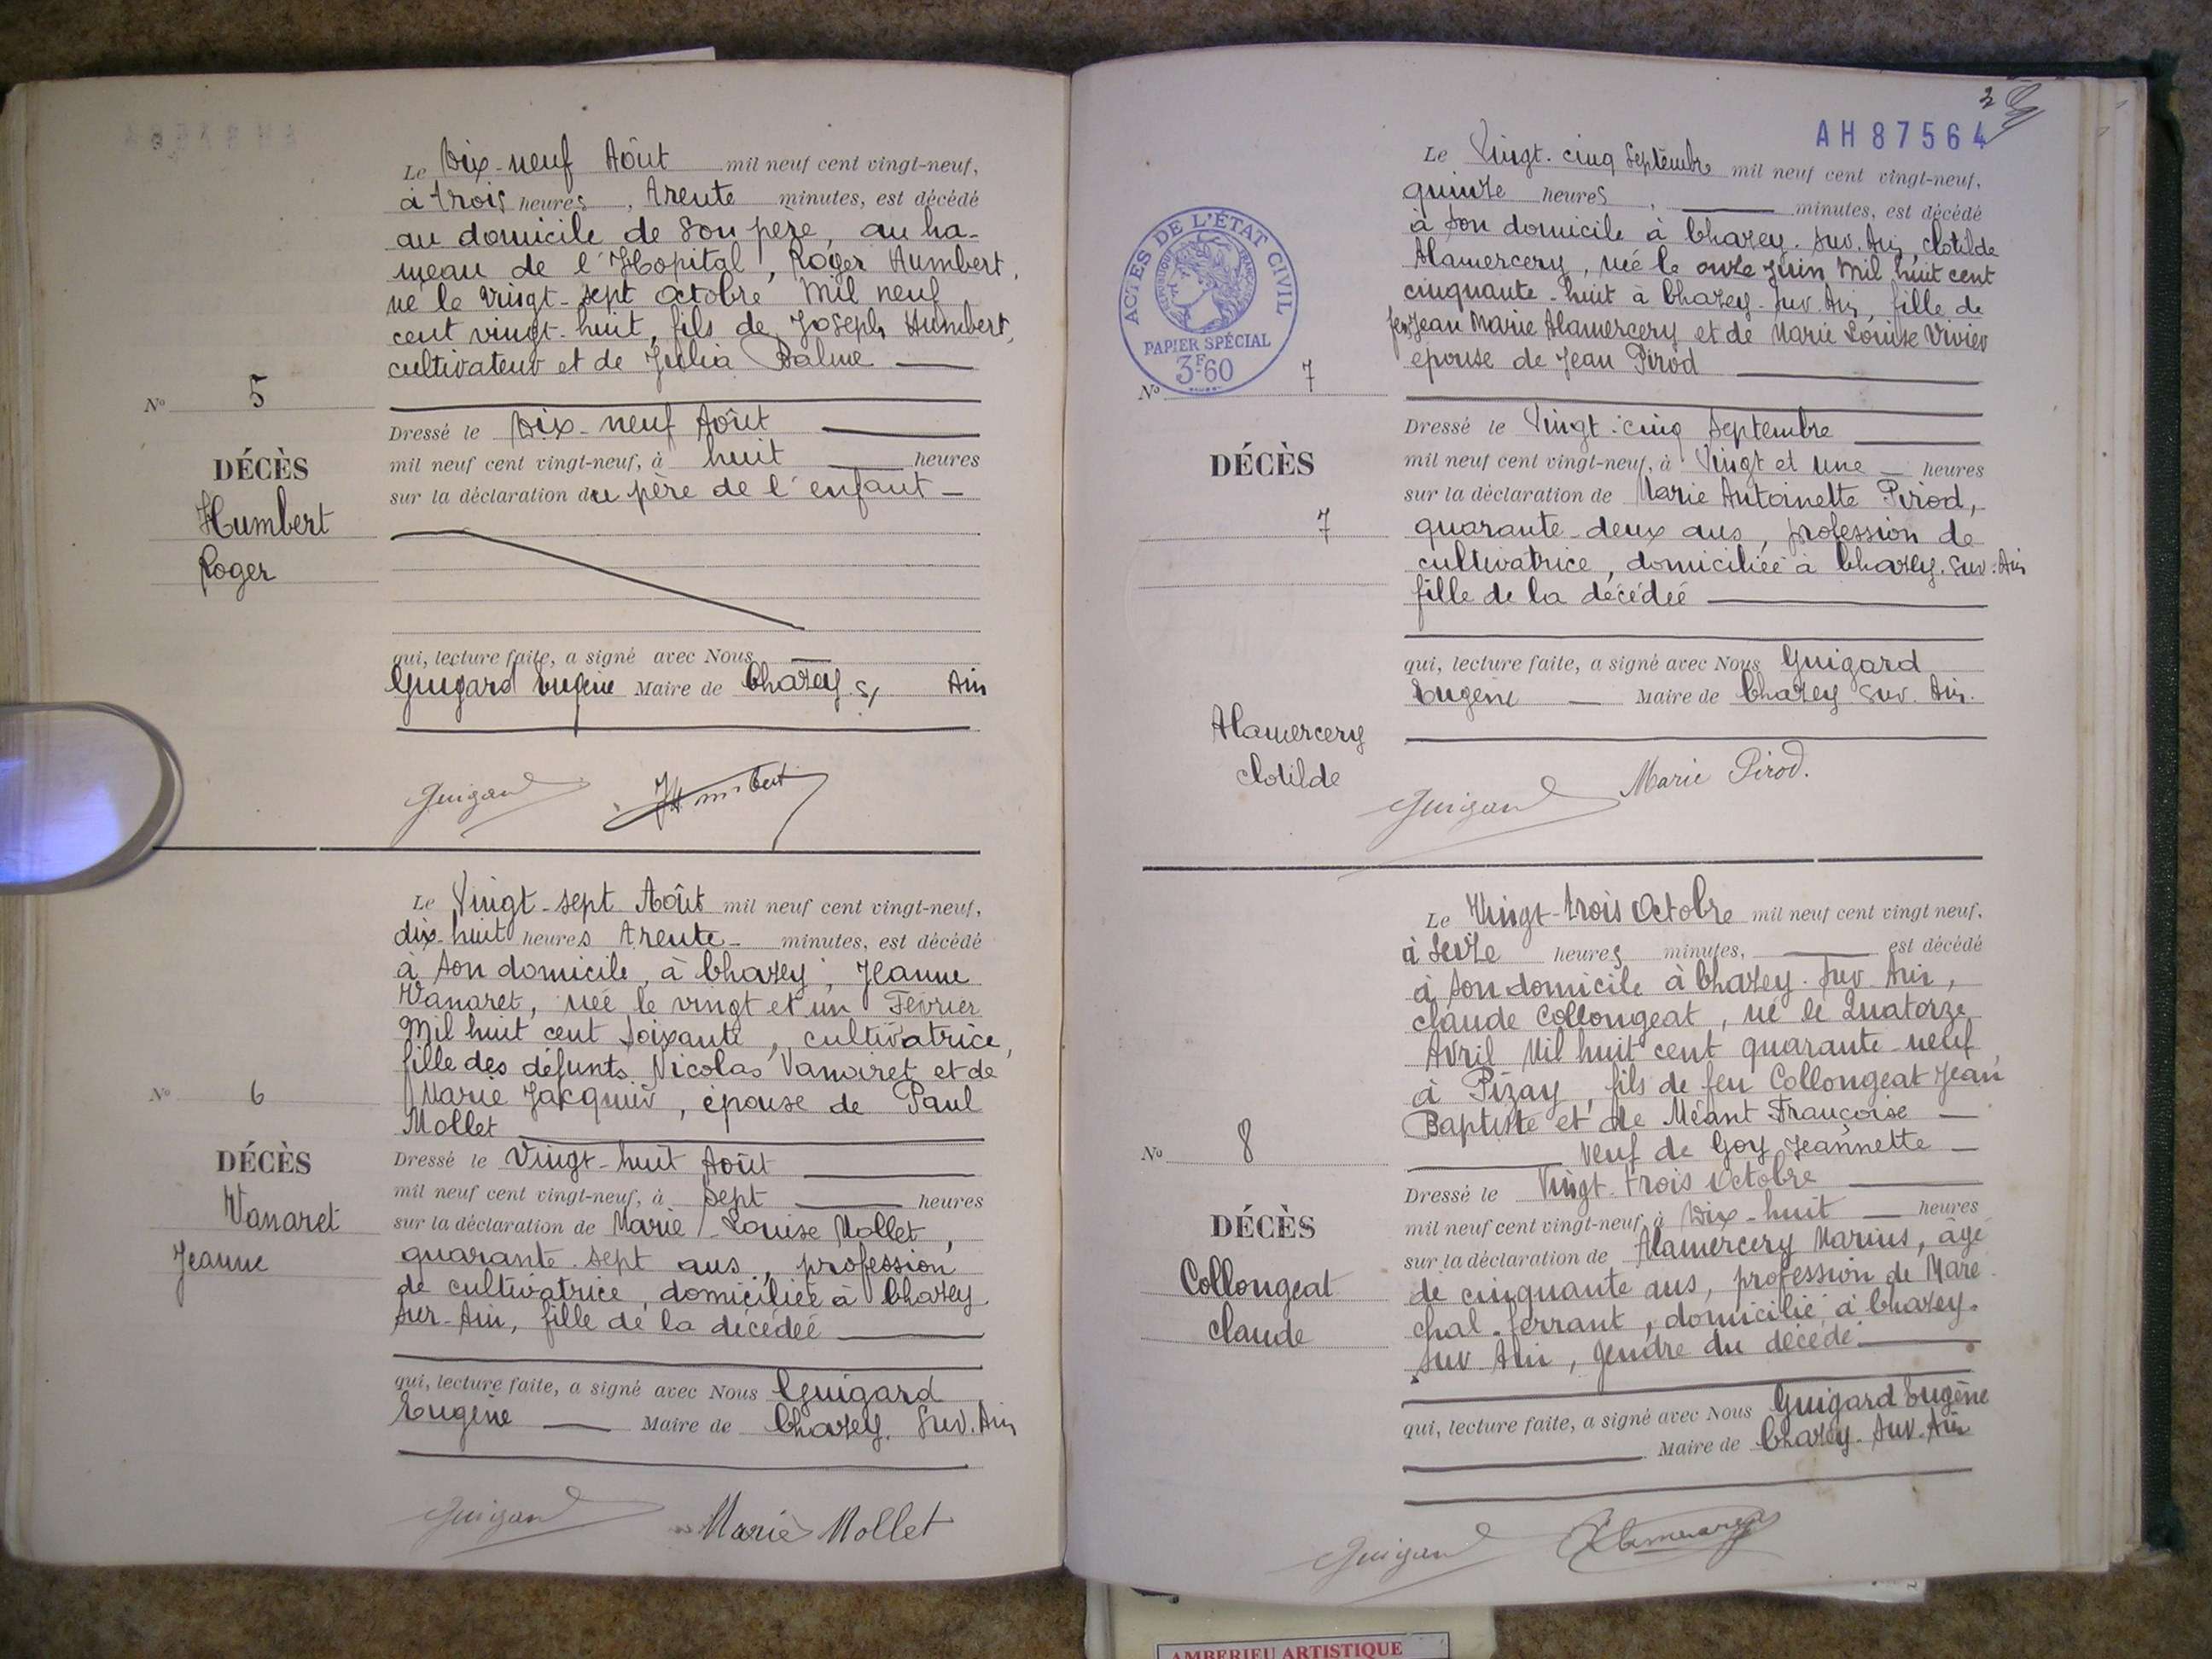 Le Dix-neuf Aôut mil neuf cent vingt-neuf,
à trois heures, trente minutes, est décédé
au domicile de son père, au ha-
meau de l'Hopital, Roger Humbert,
né le vingt-sept Octobre Mil neuf
cent vingt-huit, fils de Joseph Humbert,
cultivateur et de Julia Balme
No 5
DÉCÈS
Humbert
Roger
Dressé le Dix-neuf Aôut
mil neuf cent vingt-neuf, à huit heures
sur la déclaration du père de l'enfant
qui, lecture faite, a signé avec Nous
Guigard Eugène Maire de Chazey s/ Ain
Guigard Humbert
Le Vingt-sept Aôut mil neuf cent vingt-neuf,
dix-huit heures trente minutes, est décédé
à son domicile, à Chazey, Jeanne
Vanaret, née le vingt et un Février
Mil huit cent soixante, cultivatrice,
fille des défunts Nicolas Vanaret et de
Marie Jacquier, épouse de Paul
Mollet
No 6
DÉCÈS
Vanaret
Jeanne
Dressé le Vingt-huit Aôut
mil neuf cent vingt-neuf, à sept heures
sur la déclaration de Marie-Louise Mollet,
quarante-sept ans, profession
de cultivatrice, domiciliée à Chazey
sur-Ain, fille de la décédée
qui, lecture faite, a signé avec Nous Guigard
Eugène Maire de Chazey. Sur. Ain
Guigard Marie Mollet
2
AH87564
Le Vingt-cinq Septembre mil neuf cent vingt-neuf,
quinze heures, minutes, est décédé
à son domicile à Chazey-sur-Ain, Clotilde
Alamercery, née le onze Juin Mil huit cent
cinquante-huit à Chazey-sur-Ain, fille de
feu Jean Marie Alamercery et de Marie Louise Vivier
épouse de Jean Pirod
ACTES DE L'ÉTAT CIVIL
RÉPUBLIQUE FRANÇAISE
PAPIER SPÉCIAL
3F60
No 7
DÉCÈS
7
Alamercery
Clotilde
Dressé le Vingt-cinq Septembre
mil neuf cent vingt-neuf, à Vingt et une heures
sur la déclaration de Marie Antoinette Pirod,
quarante-deux ans, profession de
cultivatrice, domiciliée à Chazey-sur-Ain
fille de la décédée
qui, lecture faite, a signé avec Nous Guigard
Eugène Maire de Chazey-sur-Ain.
Guigard Marie Pirod.
Le Vingt-trois Octobre mil neuf cent vingt neuf,
à seize heures minutes, est décédé
à son domicile à Chazey-sur-Ain,
Claude Collongeat, né le Quatorze
Avril Mil huit cent quarante-neuf,
à Pizay, fils de feu Collongeat Jean
Baptiste et de Méant Françoise
veuf de Goy Jeannette
No 8
DÉCÈS
Collongeat
Claude
Dressé le Vingt-trois Octobre
mil neuf cent vingt-neuf, à Dix-huit heures
sur la déclaration de Alamercery Marius, âgé
de cinquante ans, profession de Maré-
chal-ferrant, domicilié à Chazey-
sur Ain, gendre du décédé
qui, lecture faite, a signé avec Nous Guigard Eugène
Maire de Chazey-sur-Ain
Guigard Alamercery
AMBERIEU ARTISTIQUE